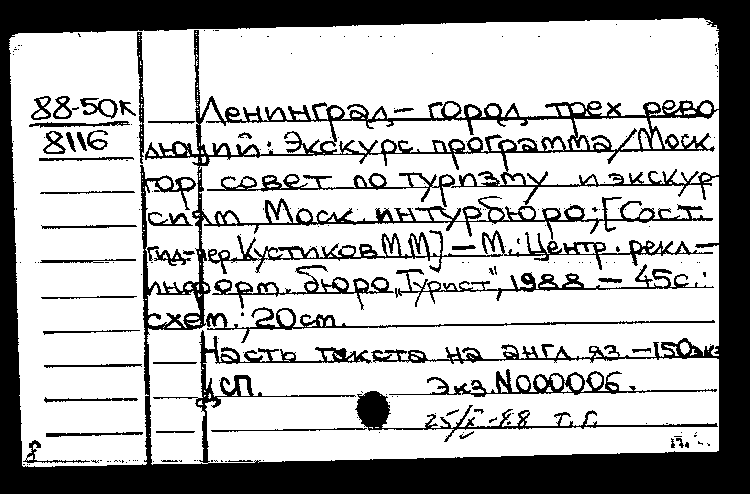 88-50к
8116
Ленинград - город трех рево
люций: Экскурс. программа/Моск.
гор. совет по туризму и экскур
сиям, Моск. интурбюро; [Сост.
гид-пер. Кустиков М.М.] - М.: Центр. рекл.-
информ. бюро „Турист", 1988. - 45с.:
схем.; 20см.
Часть текста на англ. яз. - 150экз
ДСП. Экз. N000006.
25/X-88 т. г.
8